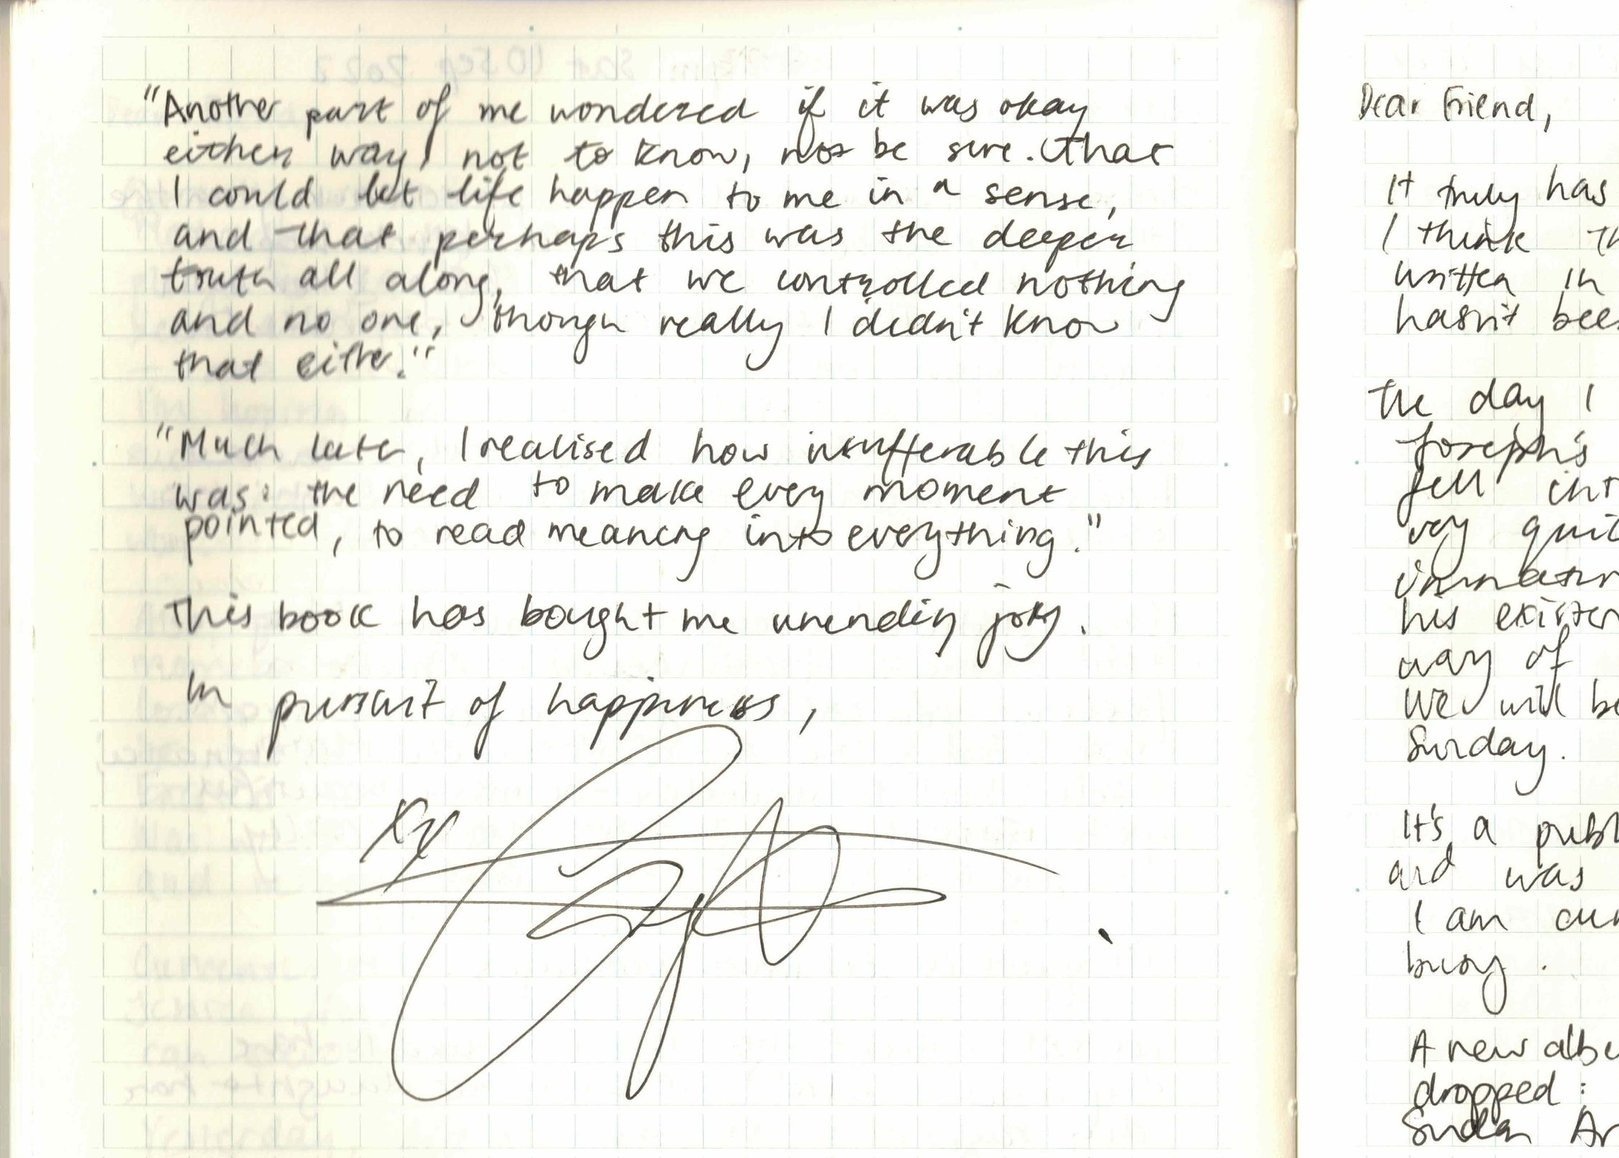 "Another part of me wondered if it was okay
either way, not to know, not be sure. That
I could let life happen to me in a sense,
and that perhaps this was the deeper
truth all along, that we controlled nothing
and no one, though really I didn't know
that either."
"Much later, I realised how insufferable this
was: the need to make every moment
pointed, to read meaning into everything."
This book has bought me unending joy.
In pursuit of happiness,
xx
Dear Friend,
It truly has
I think
written in
hasn't
The day I
Joseph's
fell
very
his
way of
We will
Sunday.
It's a
and was
I am
busy.
A new
dropped: